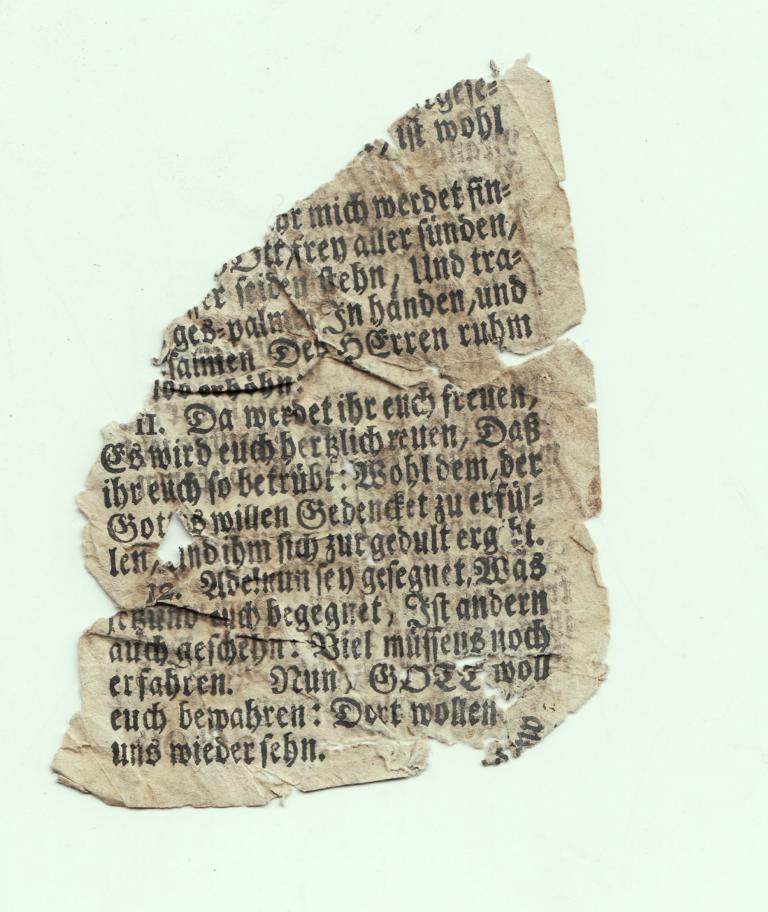 ist wohl
mich werdet fin⸗
frey aller sünden/
seiden stehn/ Und tra⸗
In händen/und
Des HErren ruhm
erhöhn:
11. Da werdet ihr euch freuen,
Es wird euch hertzlich reuen, Daß
ihr euch so betrübt: Wohl dem, der
willen Gedencket zu erfül⸗
len, und ihm sich zur gedult
12. Ade! nun sey gesegnet, Was
euch begegnet, Ist andern
auch geschehn: Viel müssens noch
erfahren. Nun, GOTT woll
euch bewahren: Dort wollen
uns wieder sehn.